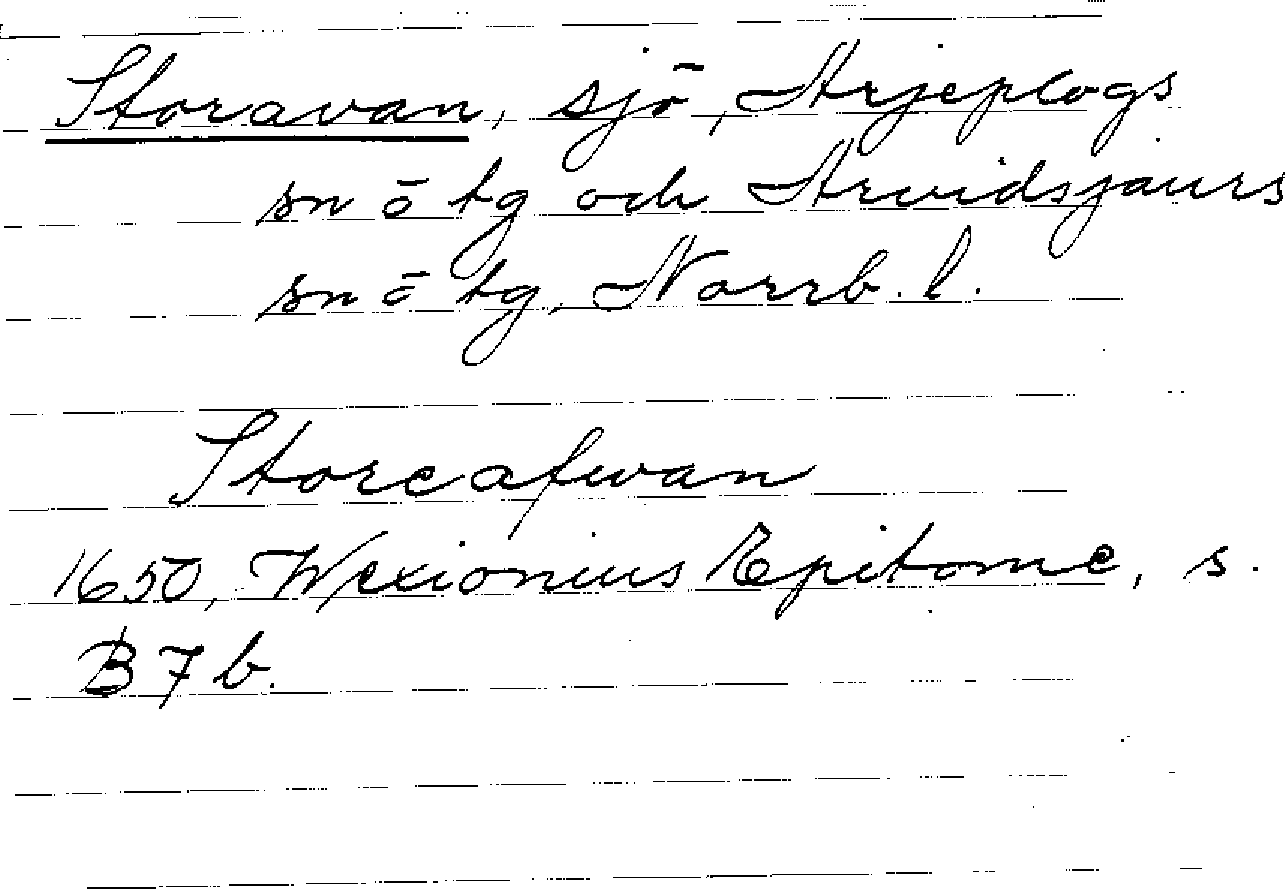 Storavan, sjö, Arjeplogs
sn ō tg och Arvidsjaurs
sn ō tg, Norrb. l.
Storeafwan
1650, Wexionius Epitome, s.
B 7 b.